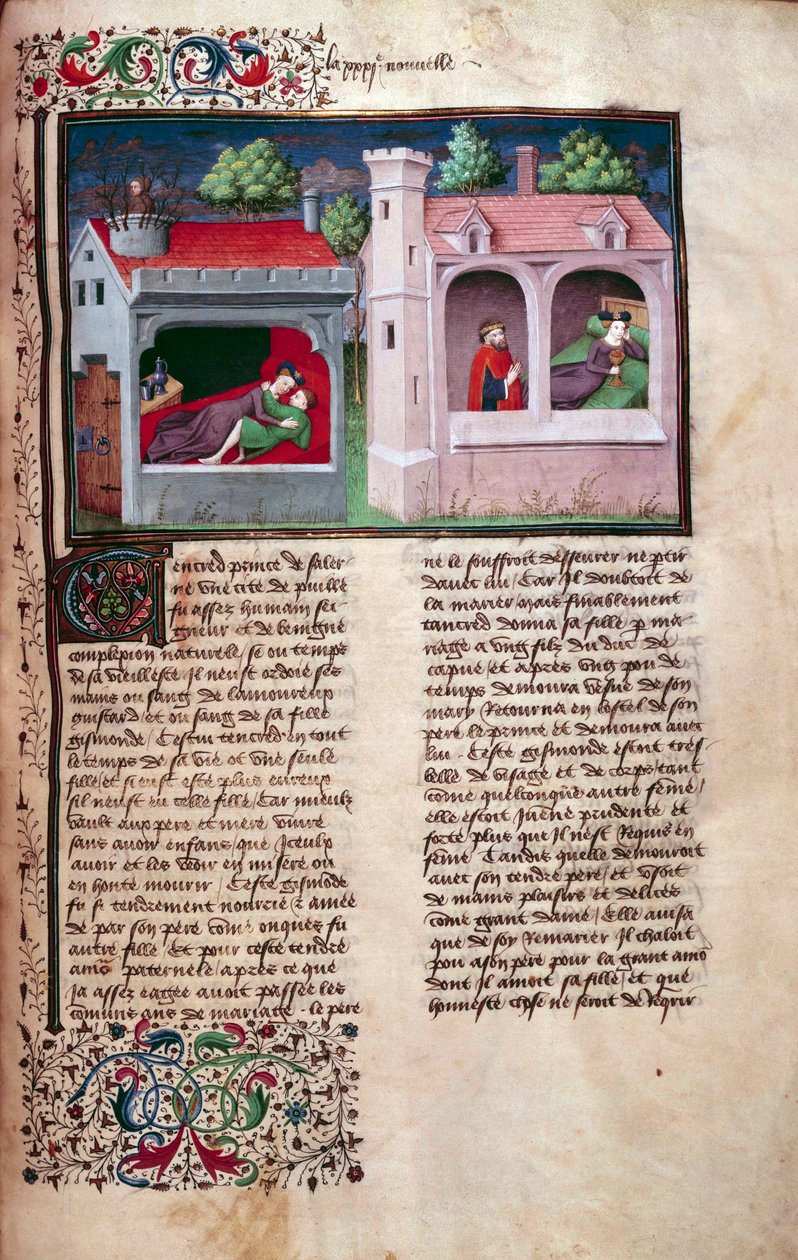 la xxxi^e nouvelle
Tencred prince de saler-
ne une cite de puille
fu assez humain sei-
gneur et de benigne
complexion naturele / se ou temps
de sa vieillesse il neust ordoie ses
mains ou sang de lamoureux
guistard / et ou sang de sa fille
gismonde / Cestui tencred en tout
le temps de sa vie ot une seule
fille / et si eust este plus eureux
sil neust eu celle fille / Car mieulx
vault aux pere et mere vivre
sans avoir enfans / que Iceulx
avoir et les veoir en misere ou
en honte mourir / Ceste gismõde
fu si tendrement nourrie & amee
de par son pere cõme onques fu
autre fille / Et pour ceste tendre
amõ paternele / apres ce que
Ja assez eagee avoit passee les
cõmuns ans de mariage - le pere
ne le souffroit dessevrer ne p̃tir
davec lui / Car Il doubtoit de
la marier / mais finablement
tancred donna sa fille p ma-
riage a ung filz du duc de
capue / et apres ung pou de
temps demoura vesve de son
mary Retourna en lostel de son
pere le prince et demoura avec
lui - Ceste gismonde estoit tres-
belle de visage et de corps / tant
cõme quelconque autre feme /
elle estoit Juene prudente et
forte plus que Il nest Requis en
feme Tandis quelle demouroit
avec son tendre pere / et usoit
de mains plaisirs et delices
cõme grant dame / Elle avisa
que de soy Remarier Il chaloit
pou a son pere pour la grant amõ
dont Il amoit sa fille / et que
honneste chose ne seroit de Reqrir